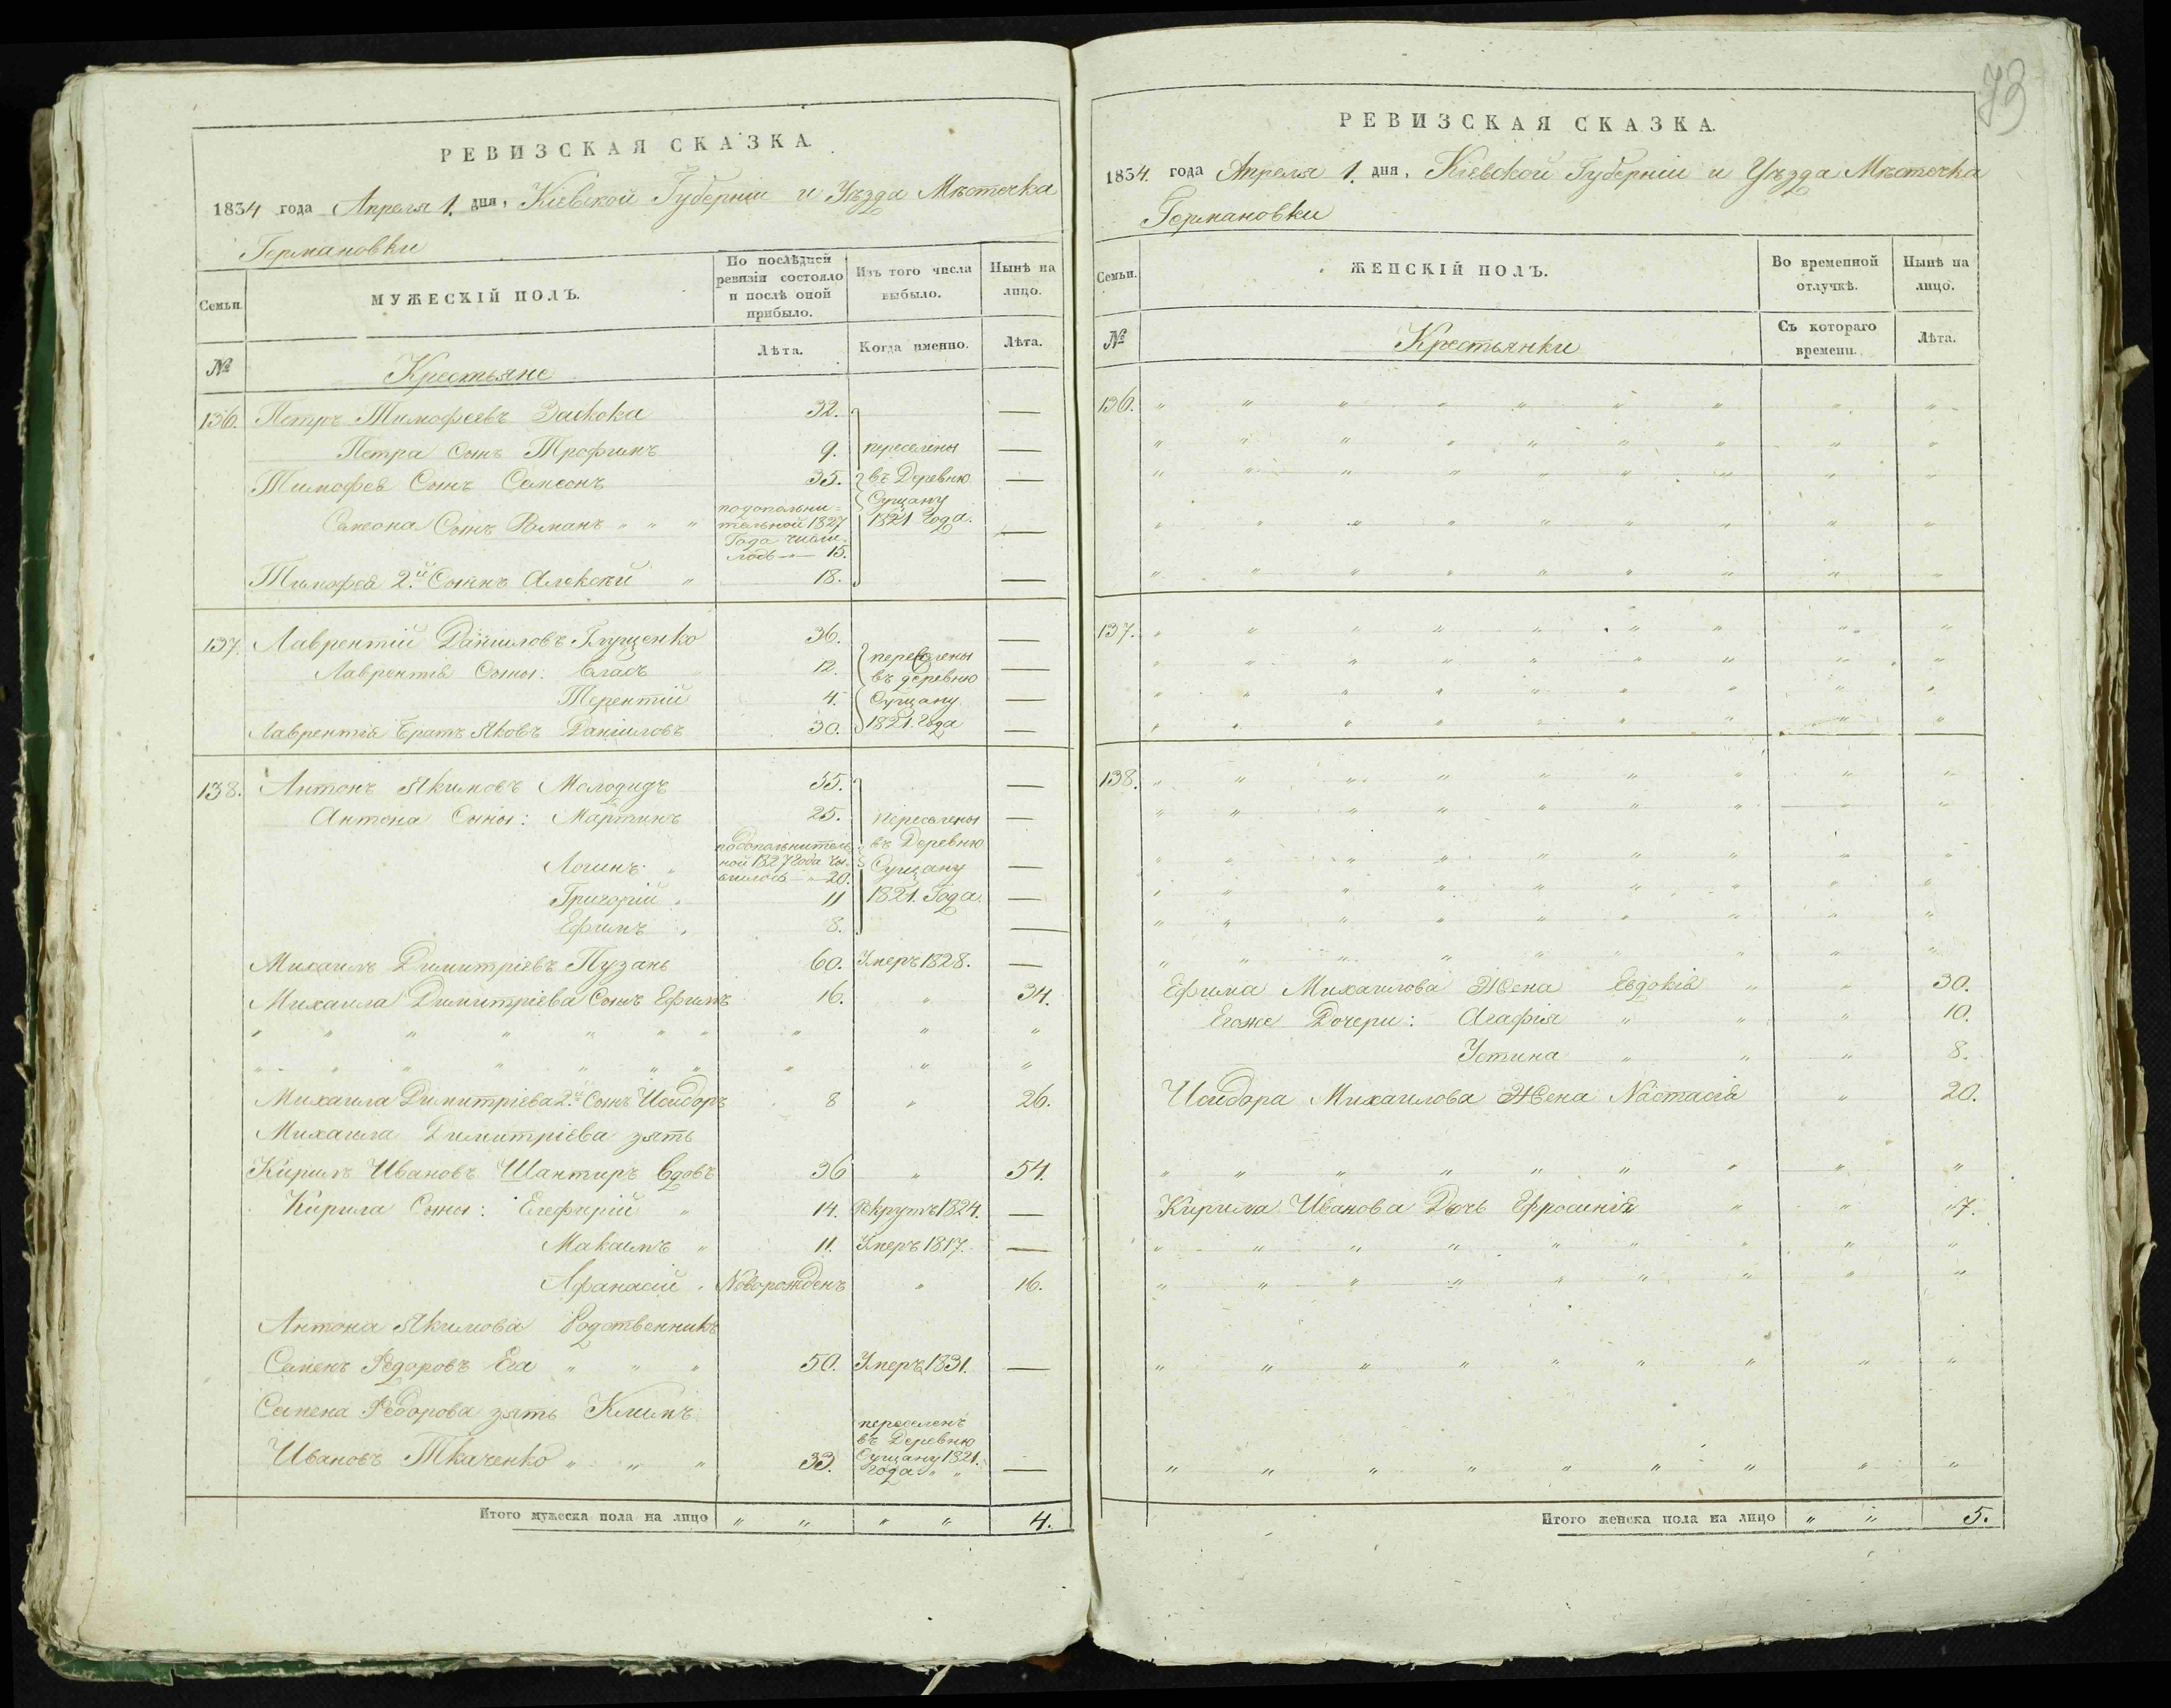 РЕВИЗСКАЯ СКАЗКА.
1834 года Апреля 1. дня, Кіевской Губерніи и Уѣзда Мѣстечка
Германовки
Семьи.
МУЖЕСКІЙ ПОЛЪ.
По послѣдней ревизіи состояло и послѣ оной прибыло.
Изъ того числа выбыло.
Нынѣ на лицо.
№
Крестьяне
Лѣта.
Когда именно.
Лѣта.
136. Петръ Тимофеевъ Заикока 32. —
Петра Сынъ Трофимъ 9. переселены —
Тимофея Сынъ Самсонъ 35. въ Деревню —
Сущану
Самсона Сынъ Романъ " " " подополни=
тельной 1827 1821 Года. —
Года числи-
лось — 15.
Тимофея 2.й Сынъ Алексѣй " 18. —
137. Лаврентій Даниловъ Глущенко 36. —
Лаврентія Сыны: Власъ 12. переселены въ деревню —
Терентій 4. Сущану —
Лаврентія Братъ Яковъ Даниловъ 30. 1821. Года —
138. Антонъ Якимовъ Молодидъ 55. —
Антона Сыны: Мартинъ 25. переселены —
подополнитель въ Деревню
Логинъ " ной 1827 Года чи- Сущану —
слилось — 20.
Григорій " 11 1821. Года. —
Ефимъ " 8. —
Михаилъ Димитріевъ Пузань 60. Умеръ 1828. —
Михаила Димитріева Сынъ Ефимъ 16. " 34.
" " " " " " " " " "
" " " " " " " " " "
Михаила Димитріева 2.й Сынъ Исидоръ 8 " 26.
Михаила Димитріева зять
Кирилъ Ивановъ Шантиръ Вдовъ 36 " 54.
Кирила Сыны: Елефирій " 14. Рекрутъ 1824. —
Максимъ " 11. Умеръ 1817. —
Афанасій " Новорожденъ " 16.
Антона Якимова Родственникъ
Семенъ Федоровъ Ега " " " 50. Умеръ 1831. —
Семена Федорова зять Климъ
переселенъ
въ Деревню
Ивановъ Ткаченко " " " 33. Сущану 1821. —
года " "
Итого мужеска пола на лицо " " " " 4.
73
РЕВИЗСКАЯ СКАЗКА.
1834. года Апреля 1. дня, Кіевской Губерніи и Уѣзда Мѣстечка
Германовки
Семьи.
ЖЕНСКІЙ ПОЛЪ.
Во временной отлучкѣ.
Нынѣ на лицо.
№
Крестьянки
Съ котораго времени.
Лѣта.
136. " " " " " " " " "
" " " " " " " " "
" " " " " " " " "
" " " " " " " " "
" " " " " " " " "
137. " " " " " " " " "
" " " " " " " " "
" " " " " " " " "
" " " " " " " " "
138. " " " " " " " " "
" " " " " " " " "
" " " " " " " " "
" " " " " " " " "
" " " " " " " " "
" " " " " " " " "
Ефима Михаилова Жена Евдокія " " 30.
Егоже Дочери: Агафія " " " 10.
Устина " " " 8.
Исидора Михаилова Жена Настасія " 20.
" " " " " " " " "
Кирила Иванова Дочь Ефросинія " " 17.
" " " " " " " " "
" " " " " " " " "
" " " " " " " " "
" " " " " " " " "
Итого женска пола на лицо " " 5.